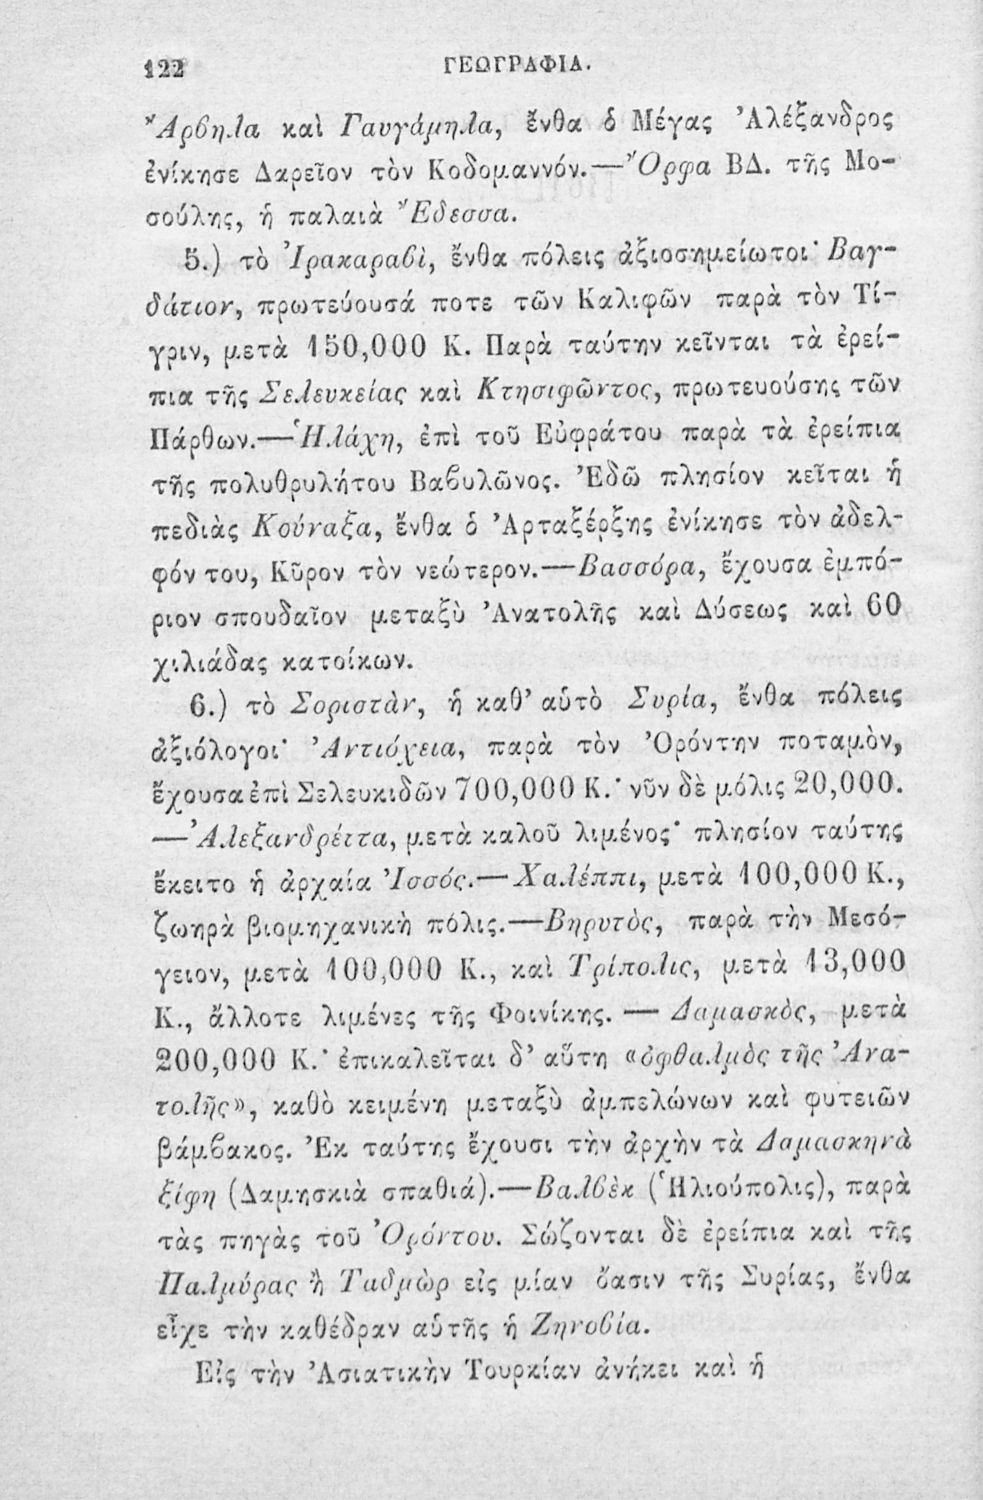 122 ΓΕΩΓΡΑΦΙΑ.
Ἄρβηλα καὶ Γαυγάμηλα, ἔνθα ὁ Μέγας Ἀλέξανδρος
ἐνίκησε Δαρεῖον τὸν Κοδομαννόν.—Ὄρφα ΒΔ. τῆς Μο-
σούλης, ἡ παλαιὰ Ἔδεσσα.
5.) τὸ Ἰρακαραβὶ, ἔνθα πόλεις ἀξιοσημείωτοι· Βαγ-
δάτιον, πρωτεύουσά ποτε τῶν Καλιφῶν παρὰ τὸν Τί-
γριν, μετὰ 150,000 Κ. Παρὰ ταύτην κεῖνται τὰ ἐρεί-
πια τῆς Σελευκείας καὶ Κτησιφῶντος, πρωτευούσης τῶν
Πάρθων.—Ἡλάχη, ἐπὶ τοῦ Εὐφράτου παρὰ τὰ ἐρείπια
τῆς πολυθρυλήτου Βαβυλῶνος. Ἐδῶ πλησίον κεῖται ἡ
πεδιὰς Κούναξα, ἔνθα ὁ Ἀρταξέρξης ἐνίκησε τὸν ἀδελ-
φόν του, Κῦρον τὸν νεώτερον.—Βασσόρα, ἔχουσα ἐμπό-
ριον σπουδαῖον μεταξὺ Ἀνατολῆς καὶ Δύσεως καὶ 60
χιλιάδας κατοίκων.
6.) τὸ Σοριστὰν, ἡ καθ’ αὑτὸ Συρία, ἔνθα πόλεις
ἀξιόλογοι· Ἀντιόχεια, παρὰ τὸν Ὀρόντην ποταμὸν,
ἔχουσα ἐπὶ Σελευκιδῶν 700,000 Κ.· νῦν δὲ μόλις 20,000.
—Ἀλεξανδρέττα, μετὰ καλοῦ λιμένος· πλησίον ταύτης
ἔκειτο ἡ ἀρχαία Ἰσσός.—Χαλέππι, μετὰ 100,000 Κ.,
ζωηρὰ βιομηχανικὴ πόλις.—Βηρυτὸς, παρὰ τὴν Μεσό-
γειον, μετὰ 100,000 Κ., καὶ Τρίπολις, μετὰ 13,000
Κ., ἄλλοτε λιμένες τῆς Φοινίκης. — Δαμασκὸς, μετὰ
200,000 Κ.· ἐπικαλεῖται δ’ αὕτη «ὀφθαλμὸς τῆς Ἀνα-
τολῆς», καθὸ κειμένη μεταξὺ ἀμπελώνων καὶ φυτειῶν
βάμβακος. Ἐκ ταύτης ἔχουσι τὴν ἀρχὴν τὰ Δαμασκηνὰ
ξίφη (Δαμησκιὰ σπαθιά).—Βαλβὲκ (Ἡλιούπολις), παρὰ
τὰς πηγὰς τοῦ Ὀρόντου. Σώζονται δὲ ἐρείπια καὶ τῆς
Παλμύρας ἢ Ταδμὼρ εἰς μίαν ὄασιν τῆς Συρίας, ἔνθα
εἶχε τὴν καθέδραν αὑτῆς ἡ Ζηνοβία.
Εἰς τὴν Ἀσιατικὴν Τουρκίαν ἀνήκει καὶ ἡ